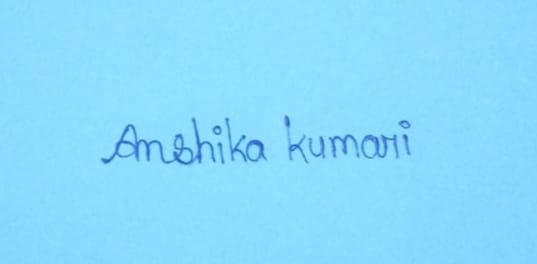 Anshika kumari